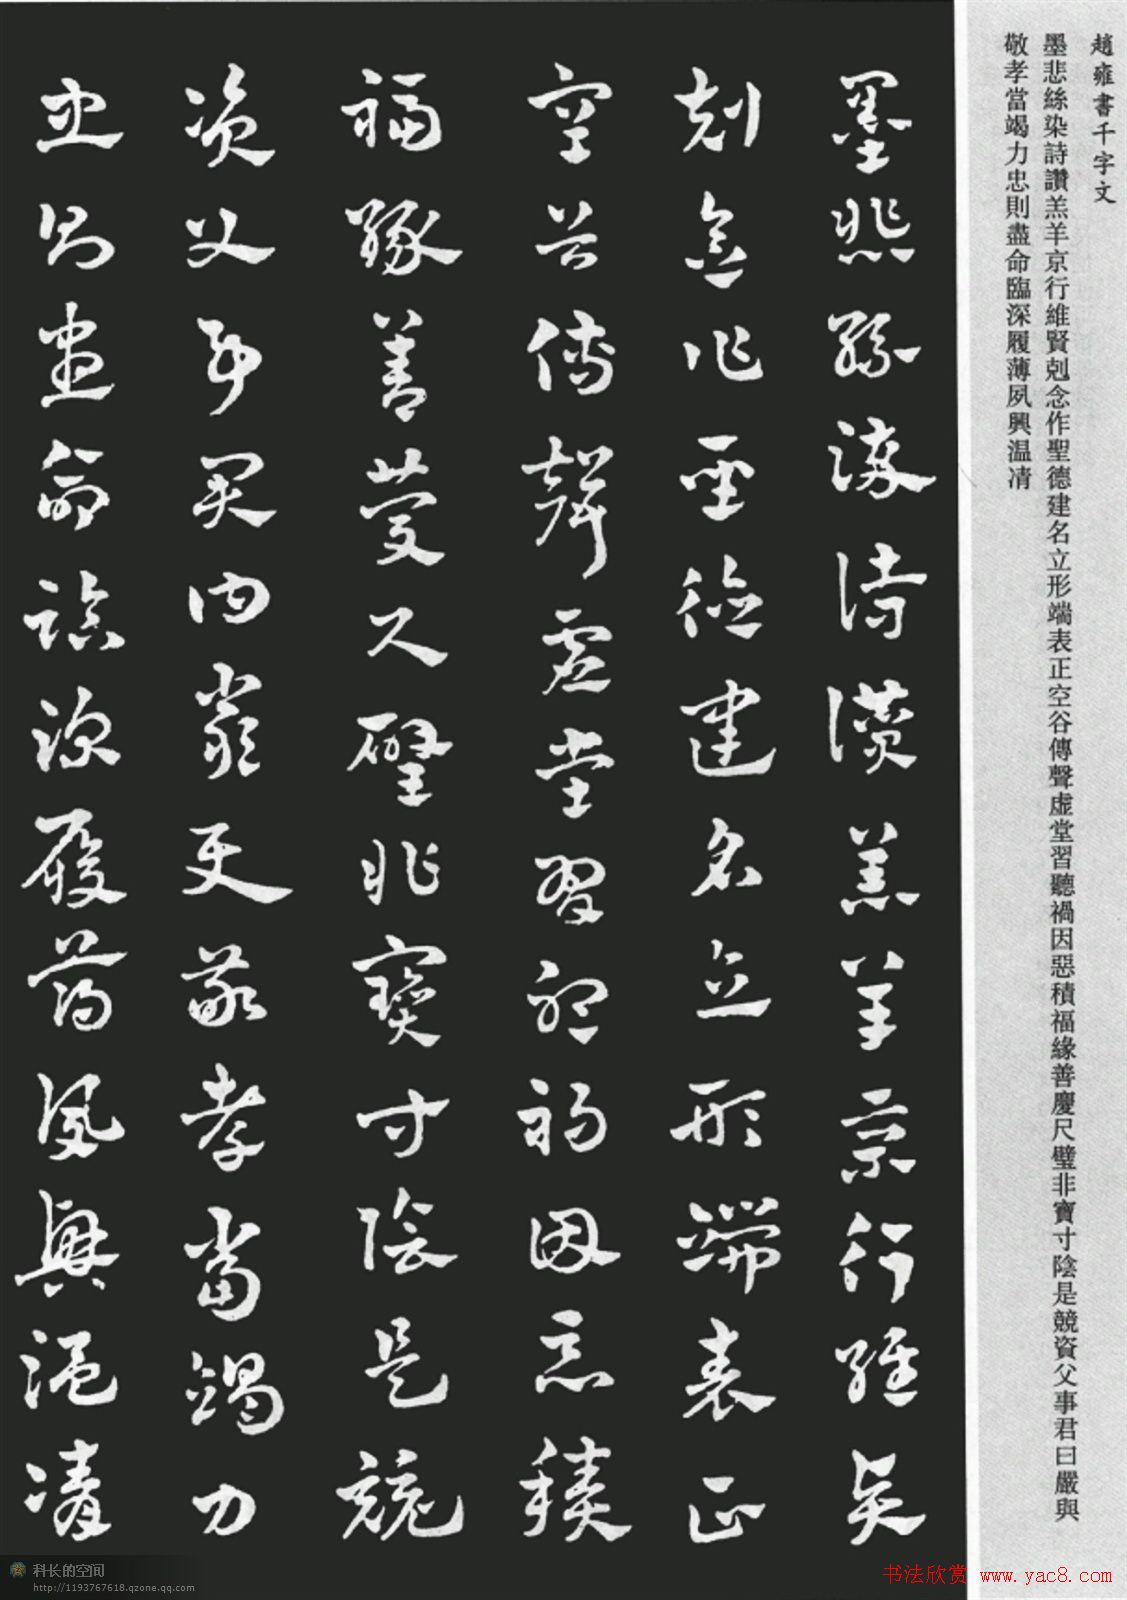 趙雍書千字文
墨悲絲染詩讚羔羊京行維賢剋念作聖德建名立形端表正空谷傳聲虛堂習聽禍因惡積福緣善慶尺璧非寶寸陰是競資父事君曰嚴與
敬孝當竭力忠則盡命臨深履薄夙興温凊
墨悲絲染詩讚羔羊京行維賢
剋念作聖德建名立形端表正
空谷傳聲虛堂習聽禍因惡積
福緣善慶尺璧非寶寸陰是競
資父事君曰嚴與敬孝當竭力
忠則盡命臨深履薄夙興温凊
科长的空间
http://1193767618.qzone.qq.com
书法欣赏 www.yac8.com